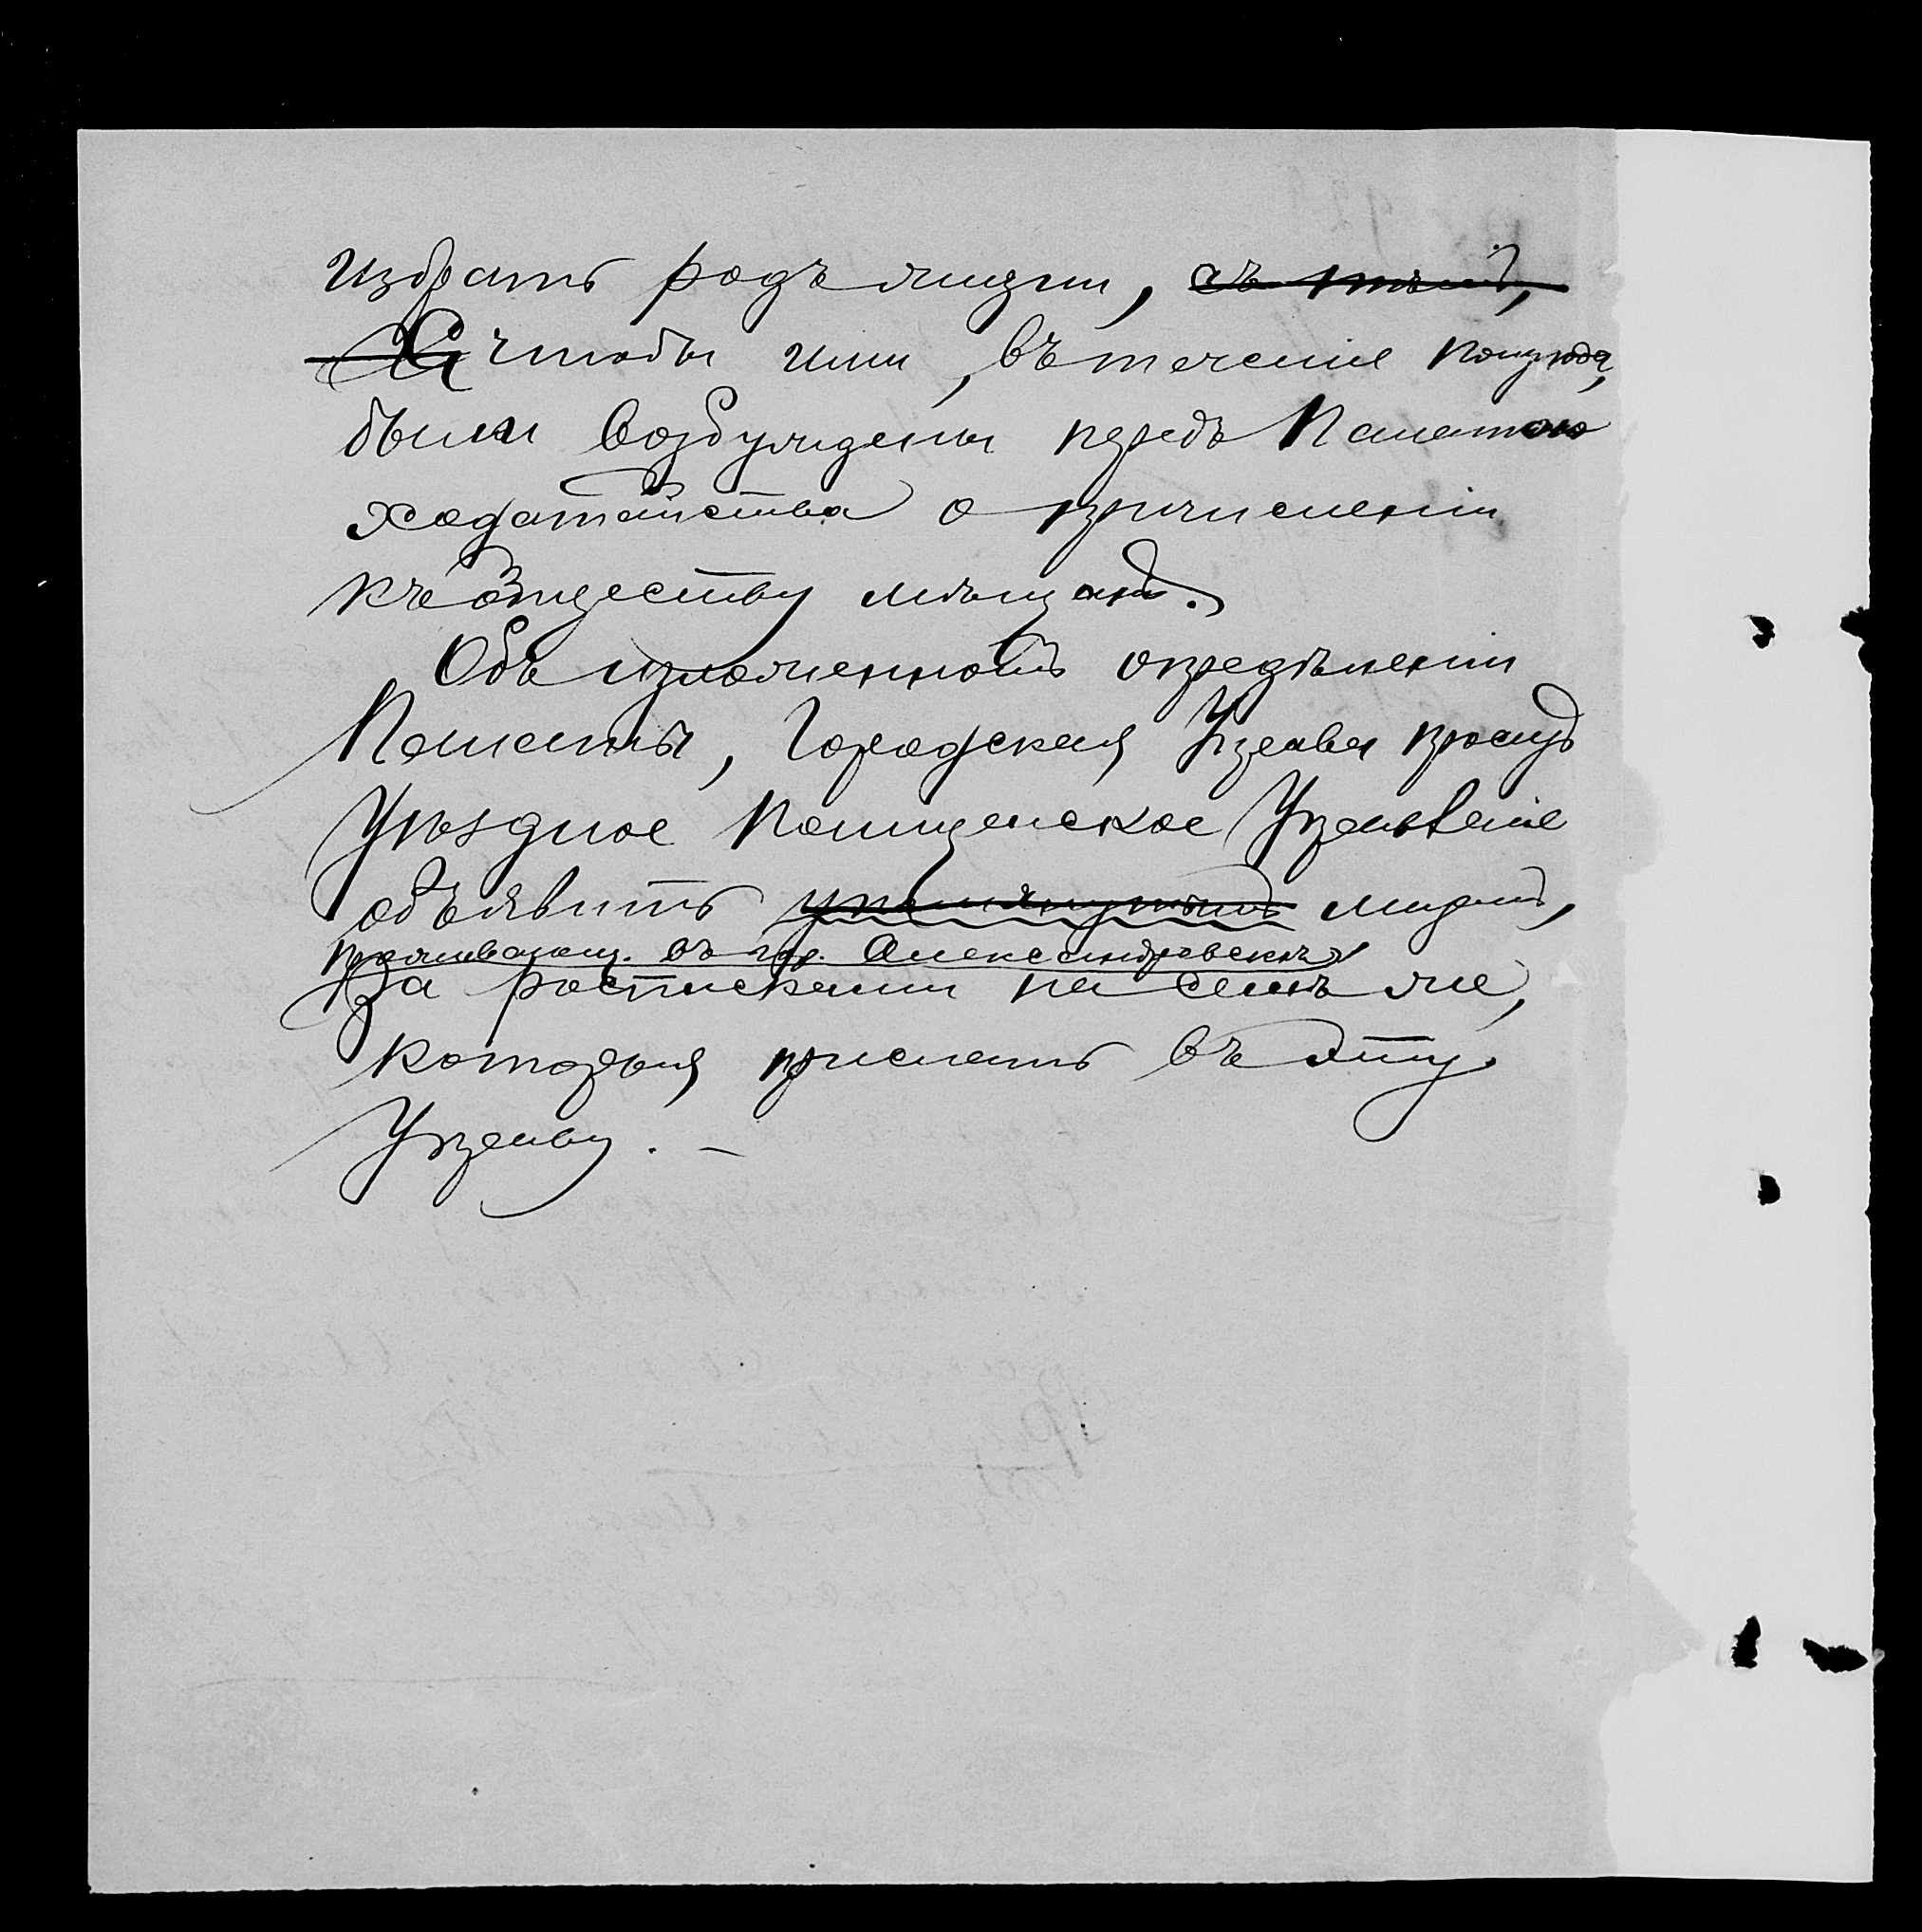 избрать родъ жизни, ~~съ тѣмъ,~~
чтобы ими, въ теченіе полугода,
были возбуждены передъ Палатою
ходатайства о причисленіи
къ обществу мѣщанъ.
Объ изложенномъ опредѣленіи
Палаты, Городская Управа проситъ
Уѣздное Полицейское Управленіе
объявить ~~упомянутымъ~~ лицамъ,
проживающ. въ гор. Александровскѣ
за росписками на семъ же,
которыя прислать въ эту
Управу. –